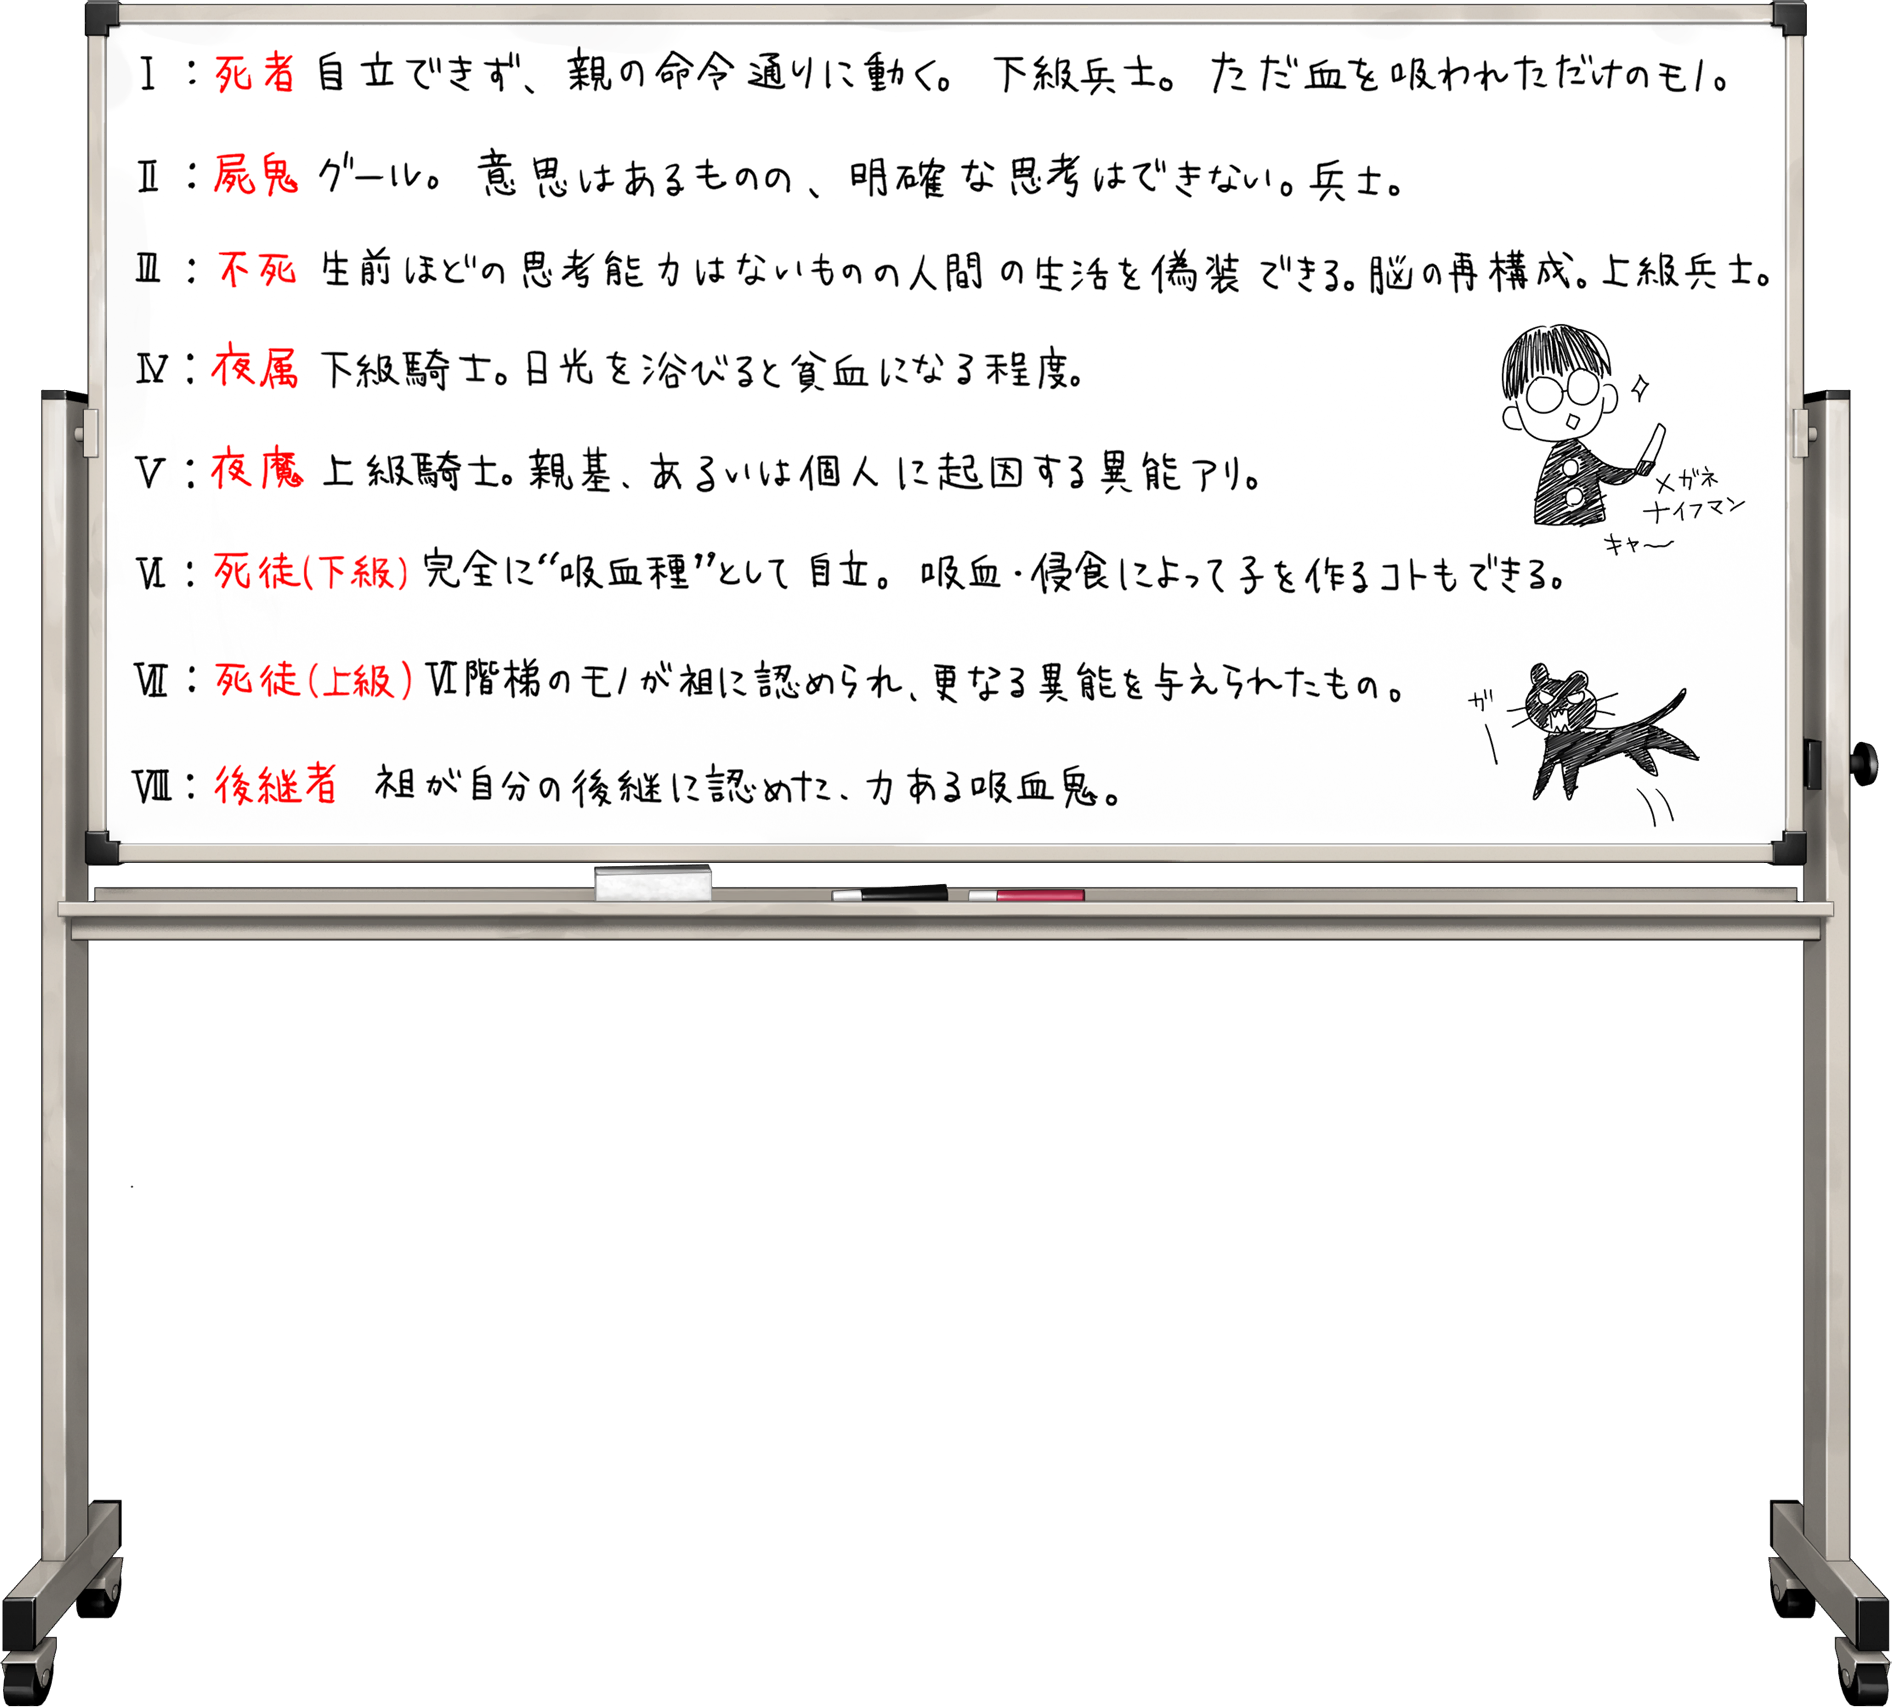 Ⅰ：死者 自立できず、親の命令通りに動く。下級兵士。ただ血を吸われただけのモノ。
Ⅱ：屍鬼 グール。意思はあるものの、明確な思考はできない。兵士。
Ⅲ：不死 生前ほどの思考能力はないものの人間の生活を偽装できる。脳の再構成。上級兵士。
Ⅳ：夜属 下級騎士。日光を浴びると貧血になる程度。
Ⅴ：夜魔 上級騎士。親基、あるいは個人に起因する異能アリ。
メガネ
ナイフマン
キャー
Ⅵ：死徒(下級) 完全に“吸血種”として自立。吸血・侵食によって子を作るコトもできる。
Ⅶ：死徒(上級) Ⅵ階梯のモノが祖に認められ、更なる異能を与えられたもの。
ガー
Ⅷ：後継者 祖が自分の後継に認めた、力ある吸血鬼。